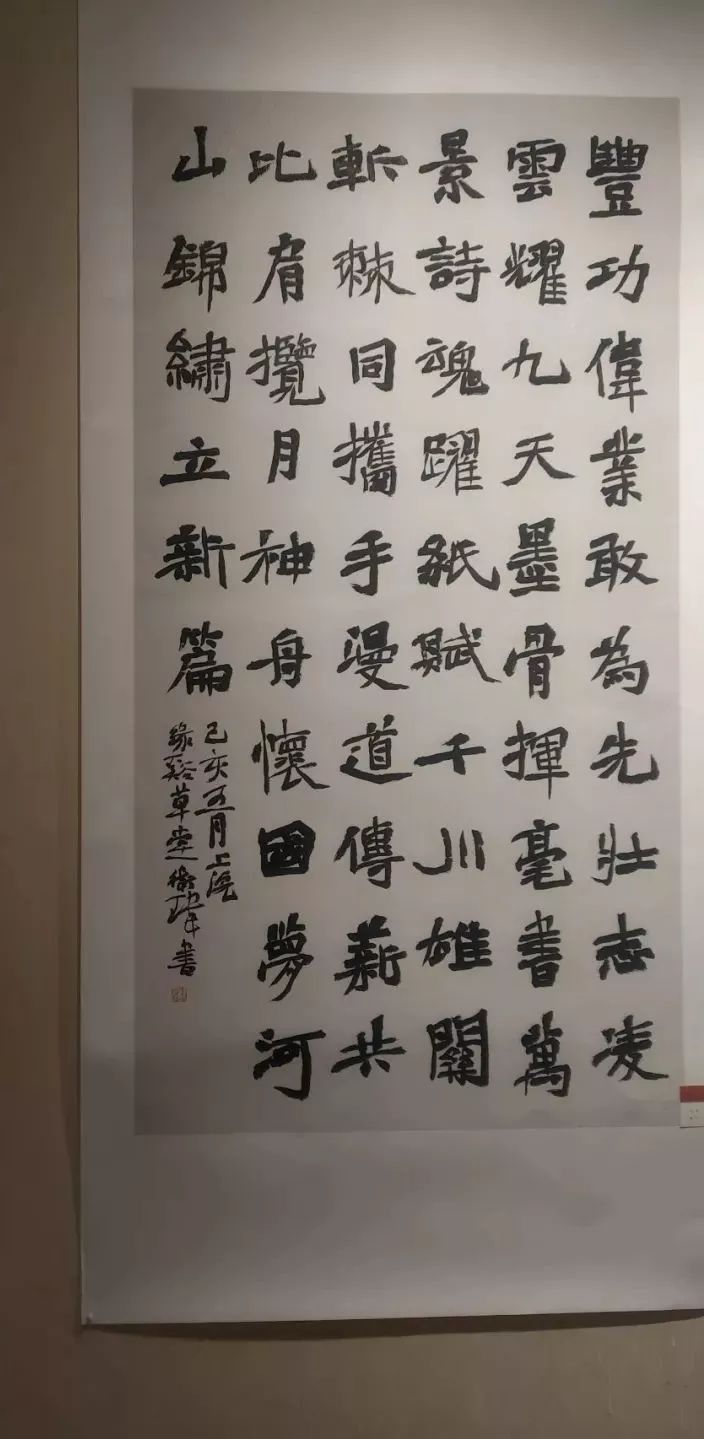 豐功偉業敢為先壯志凌
雲耀九天墨骨揮毫書萬
景詩魂躍紙賦千川雄關
斬棘同攜手漫道傳薪共
比肩攬月神舟懷國夢河
山錦繡立新篇
己亥五月上浣
緣谿草堂衛瑋書